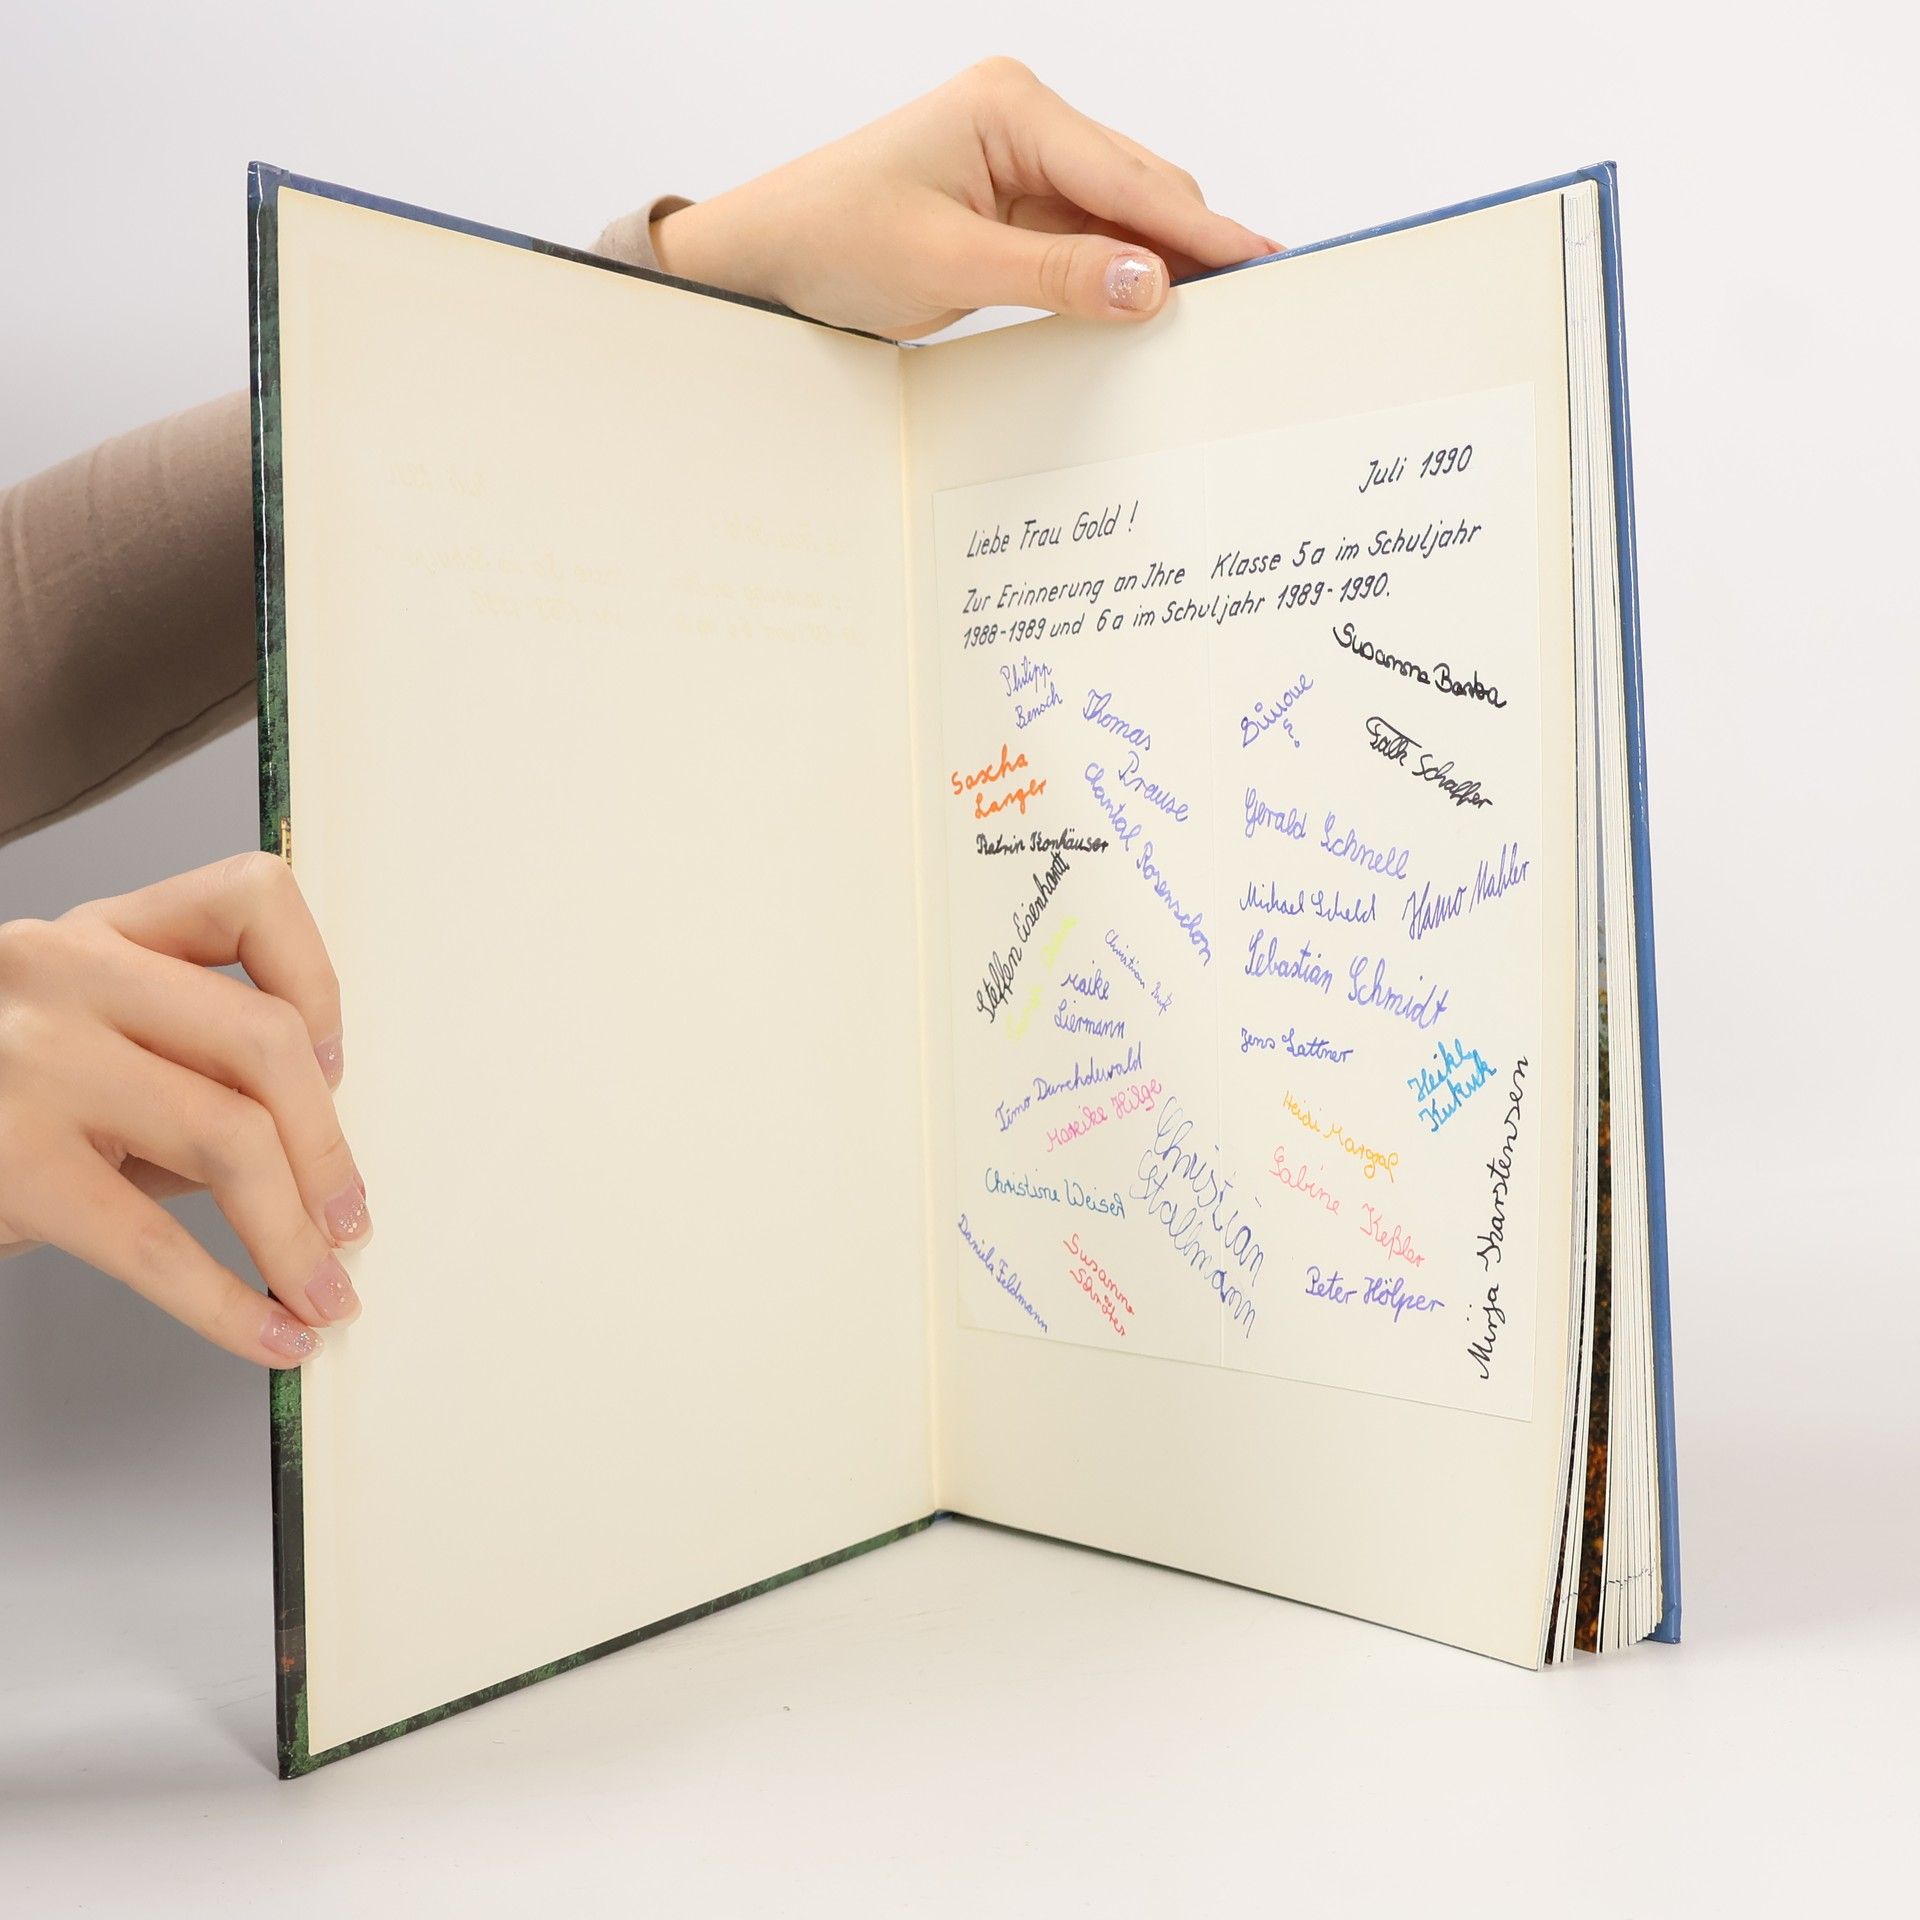 Juli 1990
Liebe Frau Gold!
Zur Erinnerung an Ihre Klasse 5a im Schuljahr
1988-1989 und 6a im Schuljahr 1989-1990.
Philipp
Benoch
Thomas
Krause
Simone
S.
Susanne Barba
Falk Schaffer
Sascha
Langer
Chantal Rosenschon
Gerald Schnell
Katrin Konhäuser
Steffen Eisenhardt
Michael Scheld
Hanno Mahler
Christian
Maike
Liermann
Sebastian Schmidt
Jens Lattner
Heike
Kukuk
Timo Durchdewald
Mareike Hilge
Heidi Margraf
Christian
Stallmann
Sabine Keßler
Mirja Karstensen
Christine Weisert
Daniela Feldmann
Susanne
Schröter
Peter Hölper